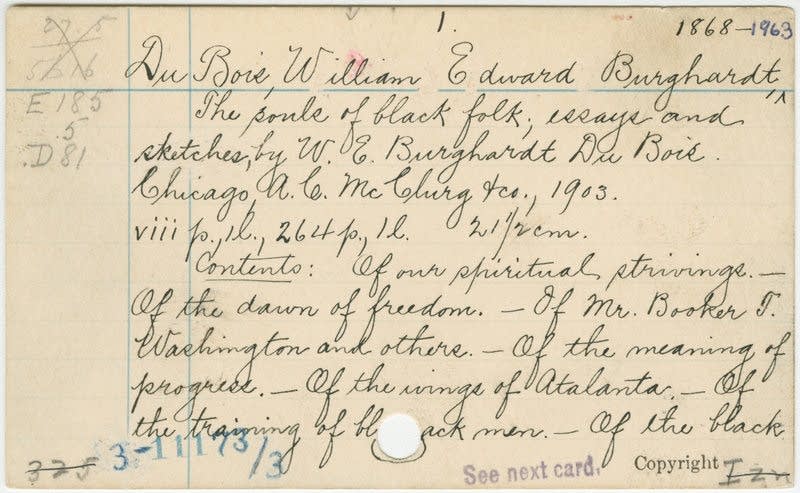 1.
1868-1963
27.5
5616
Du Bois, William Edward Burghardt,
E185
.5
.D81
The souls of black folk; essays and
sketches, by W. E. Burghardt Du Bois.
Chicago, A. C. McClurg & co., 1903.
viii p., 1l., 264 p., 1l. 21 1/2 cm.
Contents: Of our spiritual strivings. —
Of the dawn of freedom. — Of Mr. Booker T.
Washington and others. — Of the meaning of
progress. — Of the wings of Atalanta. — Of
the training of black men. — Of the black
325
3-11173/3
See next card.
Copyright